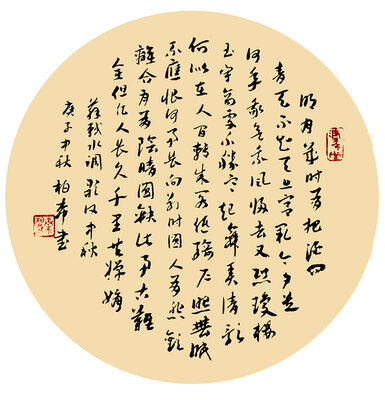 明月幾时有把酒问
青天不知天上宫阙今夕是
何年我欲乘风归去又恐瓊楼
玉宇高處不胜寒起舞弄清影
何似在人间转朱阁低绮户照無眠
不應恨何事长向别时圆人有悲欢
離合月有陰晴圆缺此事古難
全但愿人长久千里共嬋娟
蘇軾水调歌头中秋
庚子中秋柏希書